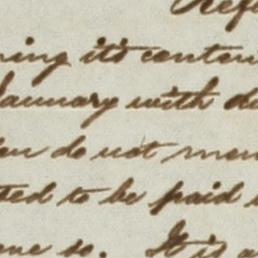 Refe
ning it's conten
January with d
ou do not men
ted to be paid
one so. It is a